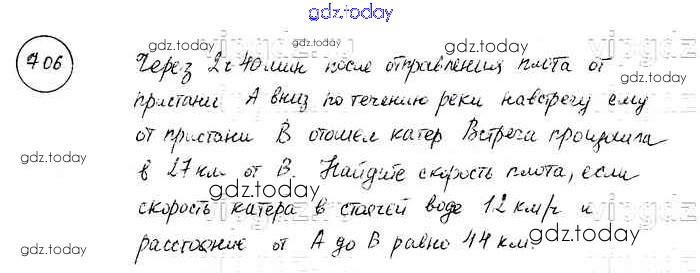 gdz.today
706
Через 2ч 40мин после отправления плота от
пристани А вниз по течению реки навстречу ему
от пристани В отошел катер Встреча произошла
в 27 км от В. Найдите скорость плота, если
скорость катера в стоячей воде 12 км/ч и
расстояние от А до В равно 44 км.
gdz.today
gdz.today
gdz.today
gdz.today
gdz.today
gdz.today
gdz.today
gdz.today
gdz.today